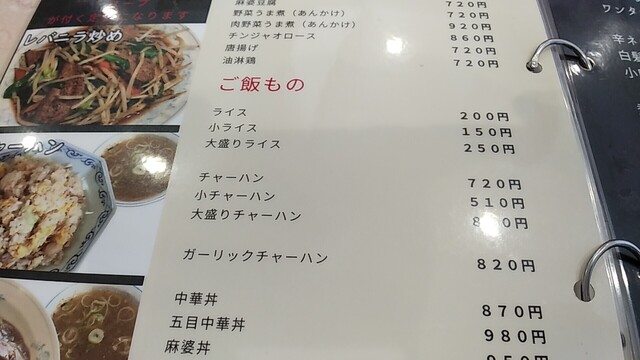 が付く定食になります
レバニラ炒め
麻婆豆腐 720円
野菜うま煮(あんかけ) 720円
肉野菜うま煮(あんかけ) 920円
チンジャオロース 860円
唐揚げ 720円
油淋鶏 720円
ご飯もの
ライス 200円
小ライス 150円
大盛りライス 250円
チャーハン 720円
小チャーハン 510円
大盛りチャーハン
ガーリックチャーハン 820円
中華丼 870円
五目中華丼 980円
麻婆丼
ーハン
ワンタ
辛ネ
白髪